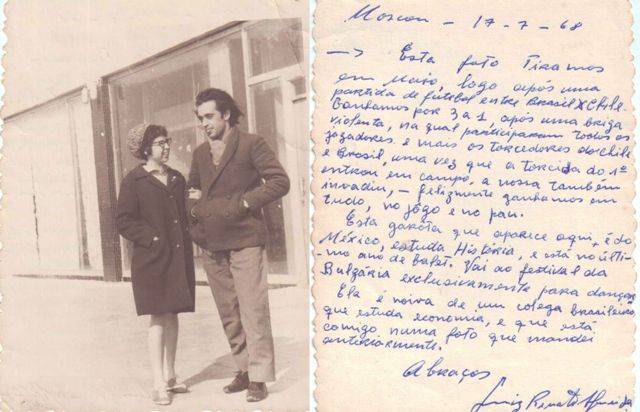 Moscou - 17-7-68
—> Esta foto Tiramos
em Maio, logo após uma
partida de futebol entre Brasil X Chile.
Ganhamos por 3 a 1, após uma briga
violenta, na qual participaram todos os
jogadores e mais os torcedores do Chile
e Brasil, uma vez que a torcida do 1º
entrou em campo, a nossa também
invadiu, - felizmente ganhamos em
tudo, no jôgo e no pau.
Esta garôta que aparece aqui, é do
México, estuda História, e está no últi-
mo ano de balet. Vai ao festival da
Bulgária exclusivamente para dançar
Ela é noiva de um colega brasileiro,
que estuda economia, e que está
comigo numa foto que mandei
anteriormente.
Abraços
Luiz Renato Almeida